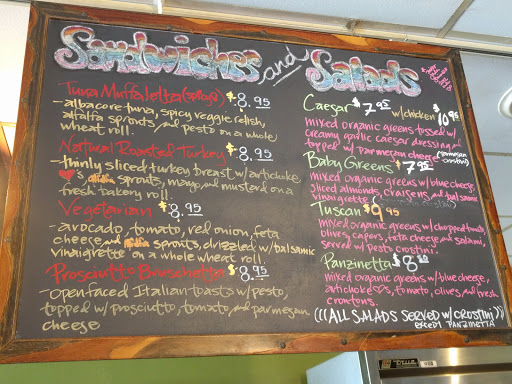 Sandwiches and Salads
Tuna Muffaletta (spicy) $8.95
- albacore tuna, spicy veggie relish,
alfalfa sprouts, and pesto on a whole
wheat roll.
Natural Roasted Turkey $8.95
- thinly sliced turkey breast w/artichoke
♥'s, sprouts, mayo, and mustard on a
fresh bakery roll.
Vegetarian $8.95
- avocado, tomato, red onion, feta
cheese and sprouts, drizzled w/balsamic
vinaigrette on a whole wheat roll.
Prosciutto Bruschetta $8.95
- openfaced Italian toasts w/pesto,
topped w/prosciutto, tomato, and parmesan
cheese
Caesar $7.95 w/chicken $10.95
mixed organic greens tossed w/
creamy garlic caesar dressing and
topped w/parmesan cheese
Baby Greens $7.95
mixed organic greens w/blue cheese,
sliced almonds, craisens, and balsamic
vinaigrette
Tuscan $9.95
mixed organic greens w/chopped tomato
olives, capers, feta cheese and salami,
served w/pesto crostini.
Panzinetta $8.50
mixed organic greens w/blue cheese,
artichoke ♡s, tomato, olives, and fresh
croutons.
(((ALL SALADS SERVED W/CROSTINI)))
EXCEPT PANZINETTA
True